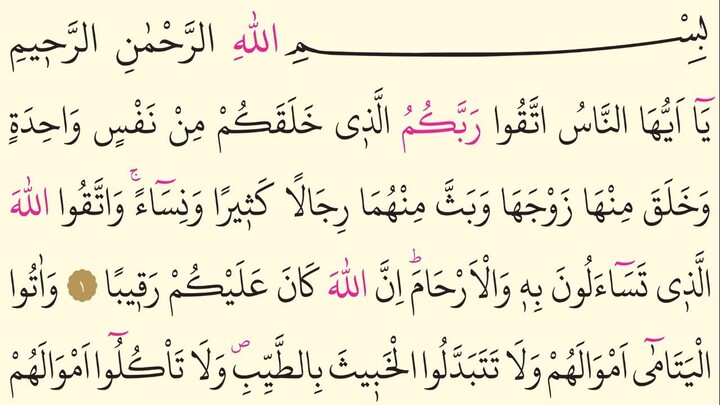 بِسْمِ اللهِ الرَّحْمٰنِ الرَّحٖيمِ
يَٓا اَيُّهَا النَّاسُ اتَّقُوا رَبَّكُمُ الَّذٖى خَلَقَكُمْ مِنْ نَفْسٍ وَاحِدَةٍ
وَخَلَقَ مِنْهَا زَوْجَهَا وَبَثَّ مِنْهُمَا رِجَالًا كَثٖيرًا وَنِسَٓاءًۚ وَاتَّقُوا اللهَ
الَّذٖى تَسَٓاءَلُونَ بِهٖ وَالْاَرْحَامَؕ اِنَّ اللهَ كَانَ عَلَيْكُمْ رَقٖيبًا ١ وَاٰتُوا
الْيَتَامٰٓى اَمْوَالَهُمْ وَلَا تَتَبَدَّلُوا الْخَبٖيثَ بِالطَّيِّبِࣕ وَلَا تَاْكُلُٓوا اَمْوَالَهُمْ